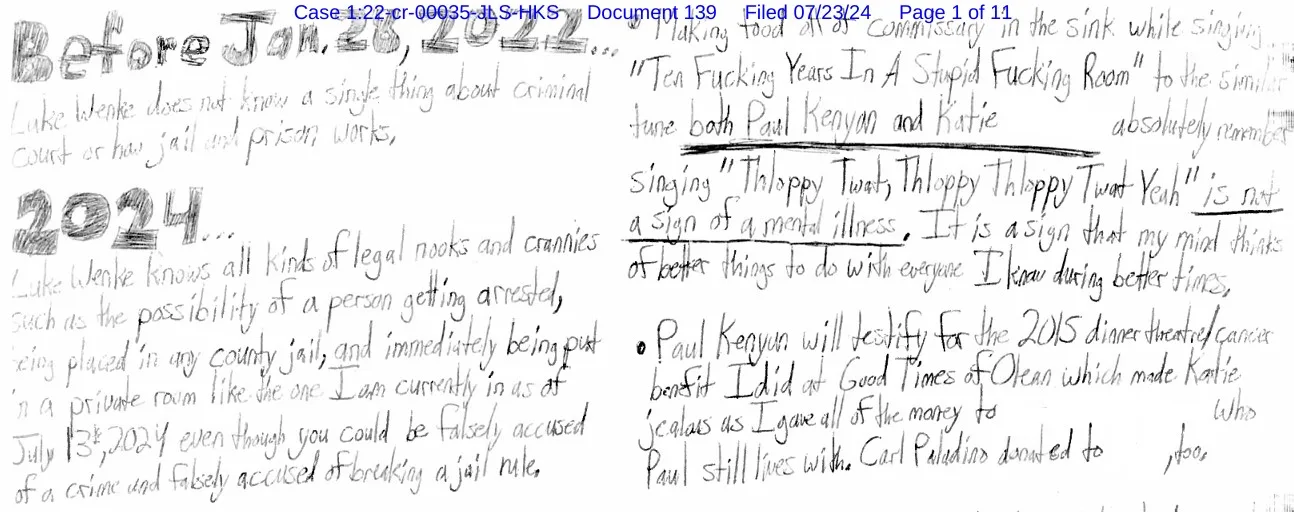 Case 1:22-cr-00035-JLS-HKS Document 139 Filed 07/23/24 Page 1 of 11
Before Jan. 28, 2022...
Luke Wenke does not know a single thing about criminal
court or how jail and prison works.
2024...
Luke Wenke knows all kinds of legal nooks and crannies
such as the possibility of a person getting arrested,
being placed in any county jail, and immediately being put
in a private room like the one I am currently in as of
July 13th, 2024 even though you could be falsely accused
of a crime and falsely accused of breaking a jail rule.
• Making food out of commissary in the sink while singing
"Ten Fucking Years In A Stupid Fucking Room" to the similar
tune both Paul Kenyon and Katie absolutely remember
singing "Thloppy Twat, Thloppy Thloppy Twat Yeah" is not
a sign of a mental illness. It is a sign that my mind thinks
of better things to do with everyone I knew during better times.
• Paul Kenyon will testify for the 2015 dinner theatre/cancer
benefit I did at Good Times of Olean which made Katie
jealous as I gave all of the money to Who
Paul still lives with. Carl Paladino donated to , too.